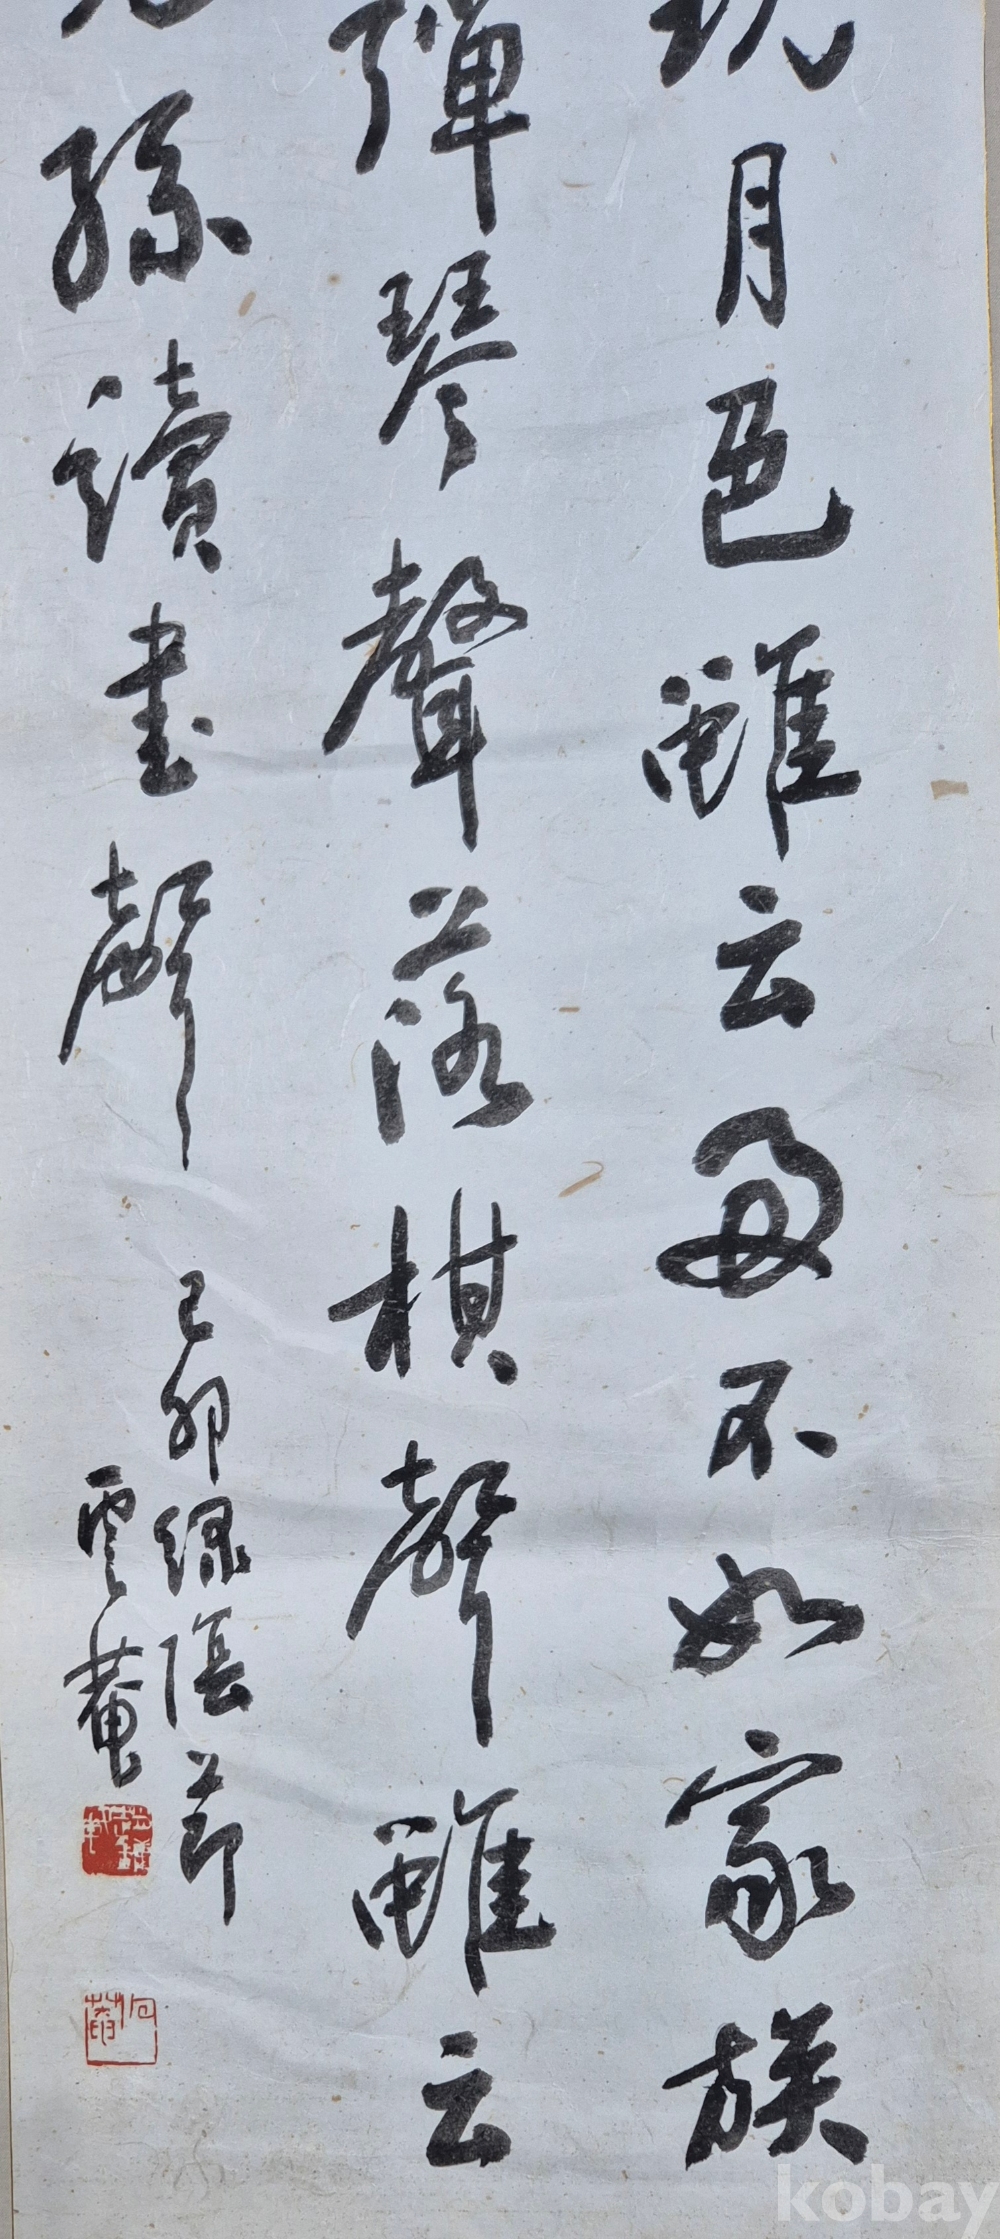 玩月色雖云多不如家族
彈琴聲落棋聲雖云
孫讀書聲
己卯綠陰節
雲菴
kobay